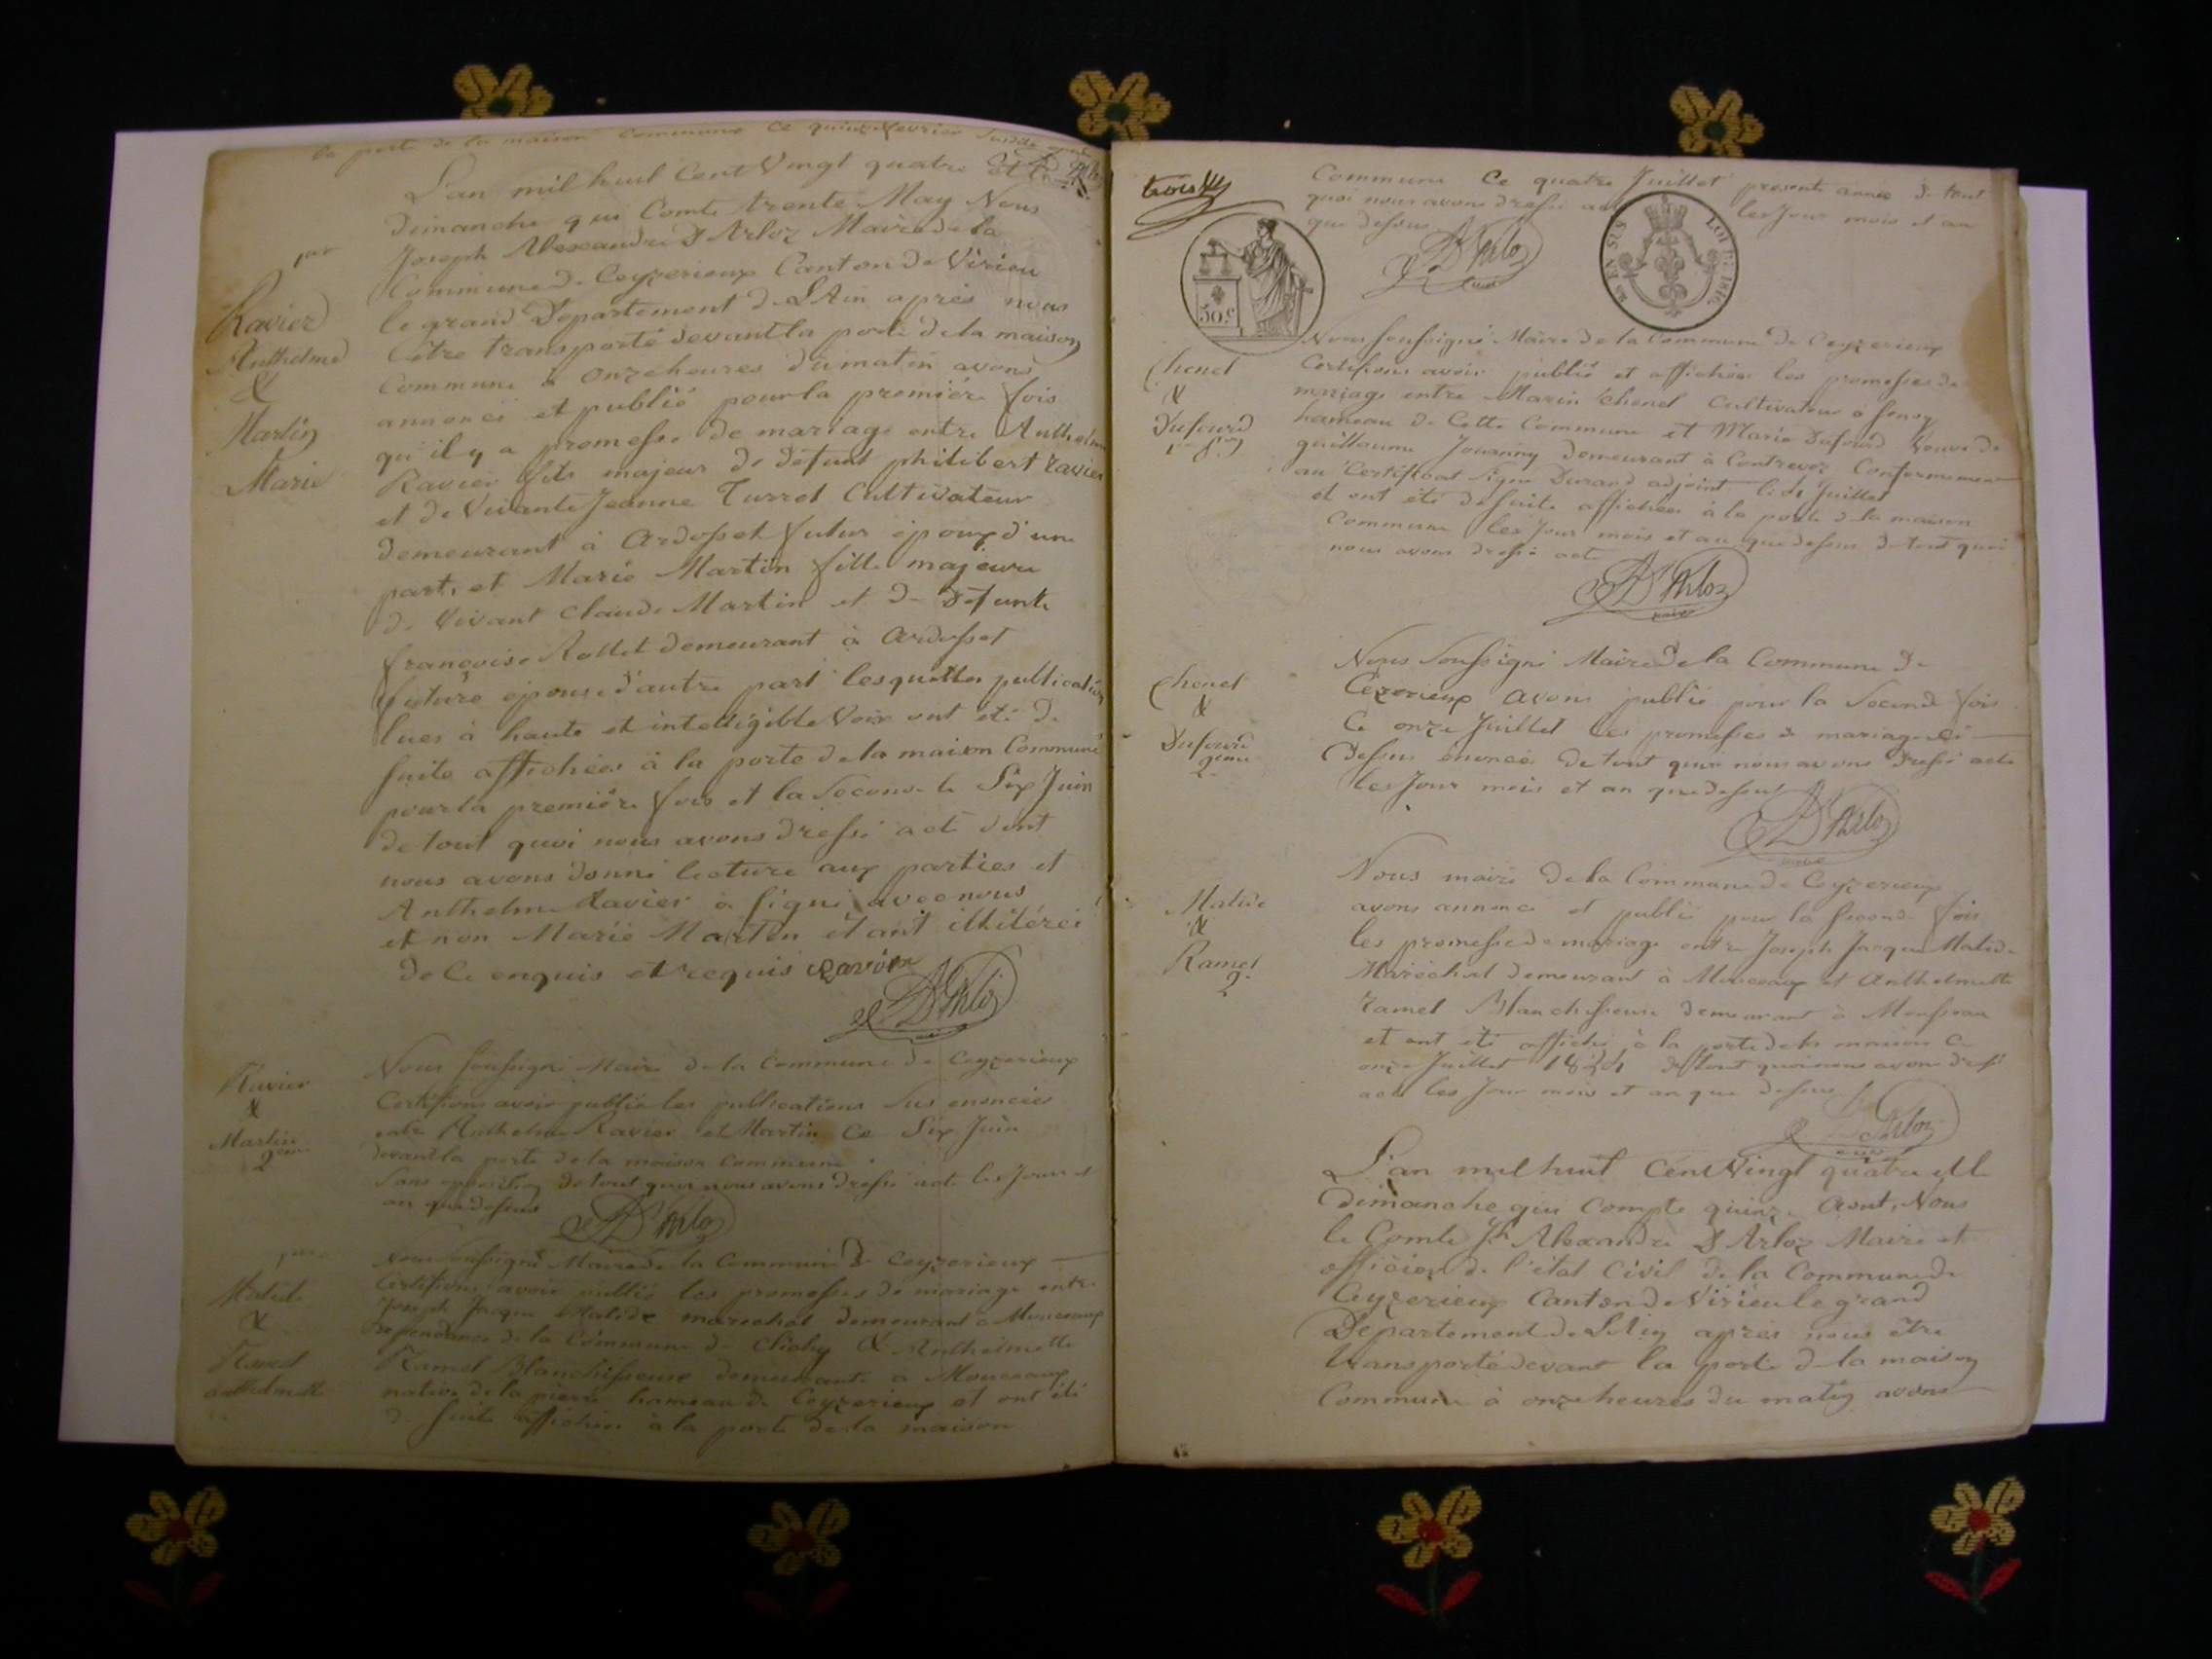 la porte de la maison commune ce quinze fevrier susdite
L'an mil huit Cent Vingt quatre Et le
dimanche qui Comte trente May Nous
Joseph Alexandre D'Arloz Maire de la
Commune de Ceyzerieux Canton de Virieu
le grand Departement de L'Ain après nous
être transporté devant la porte de la maison
Commune à onze heures du matin avons
annoncé et publié pour la premiére fois
qu'il y a promesse de mariage entre Anthelme
Ravier fils majeur de defunt philibert ravier
et de Vivante Jeanne Turrel Cultivateur
demeurant à Ardosset futur époux d'une
part, et Marie Martin fille majeure
de Vivant Claude Martin et de Defunte
françoise Rollet demeurant à Ardosset
future épouse d'autre part lesquelles publications
lues à haute et intelligible Voix ont été de
suite affichées à la porte de la maison Commune
pour la premiére fois et la Seconde le Six Juin
de tout quoi nous avons dressé acte dont
nous avons donné lecture aux parties et
Anthelme Ravier à signé avec nous
et non Marie Martin étant illitérée
de Ce enquis et requis ravier
D'Arloz
1ere
Ravier
Anthelme
&
Martin
Marie
Nous soussigné Maire de la Commune de Ceyzerieux
Certifions avoir publié les publications Sus enoncées
entre Anthelme Ravier et Martin Ce Six Juin
devant la porte de la maison commune
Sans opposition de tout quoi nous avons dressé acte les Jour et
an que dessus
D'Arloz
Ravier
&
Martin
2eme
Nous soussigné Maire de la Commune de Ceyzerieux
Certifions avoir publié les promesses de mariage entre
Joseph Jacque Matide marechal demeurant a Mouceaux
dependance de la Commune de Clichy & Anthelmette
Ramel Blanchisseuse demeurante à Mouceaux
native de la pierre hameau de Ceyzerieux et ont été
de suite affichées à la porte de la maison
Matide
&
Ramel
anthelmette
trois
Commune Ce quatre Juillet presente année de tout
quoi nous avons dressé acte les Jour mois et an
que dessus
D'Arloz
maire
50 c
EN SUS
LOI DE 1816.
Nous soussigné Maire de la Commune de Ceyzerieux
Certifions avoir publié et affichées les promesses de
mariage entre Marin Chenel Cultivateur à
hameau de Cette Commune et Marie Dufourd veuve de
guillaume Jouanny demeurant à Contrevoz Conformement
au Certificat signé Durand adjoint le 4 Juillet
et ont été desuite affichées à la porte de la maison
Commune les Jour mois et an que dessus de tout quoi
nous avons dressé acte
D'Arloz
maire
Chenel
&
Dufourd
Nous Soussigné Maire de la Commune de
Cezerieux avons publié pour la Seconde fois
Ce onze Juillet les promesses de mariage ci
Dessus énoncées de tout quoi nous avons dressé acte
les Jour mois et an que dessus
D'Arloz
Chenel
&
Dufourd
2eme
Nous maire de la Commune de Ceyzerieux
avons annoncé et publié pour la seconde fois
les promesse de mariage entre Joseph Jacque Matide
Maréchal demeurant à Mouceaux et Anthelmette
ramel Blanchisseuse demeurant à Mousseau
et ont été affiché à la porte de la maison Ce
onze Juillet 1824 de tout quoi nous avons dressé
acte les Jour mois et an que dessus
D'Arloz
Matide
&
Ramel
2
L'an mil huit Cent Vingt quatre et le
dimanche qui Compte quinze Aout, Nous
le Comte Jh Alexandre D'Arloz Maire et
officier de l'état Civil de la Commune de
Ceyzerieux Canton de Virieu le grand
Département de L'Ain après nous être
transporté devant la porte de la maison
Commune à onze heures du matin avons